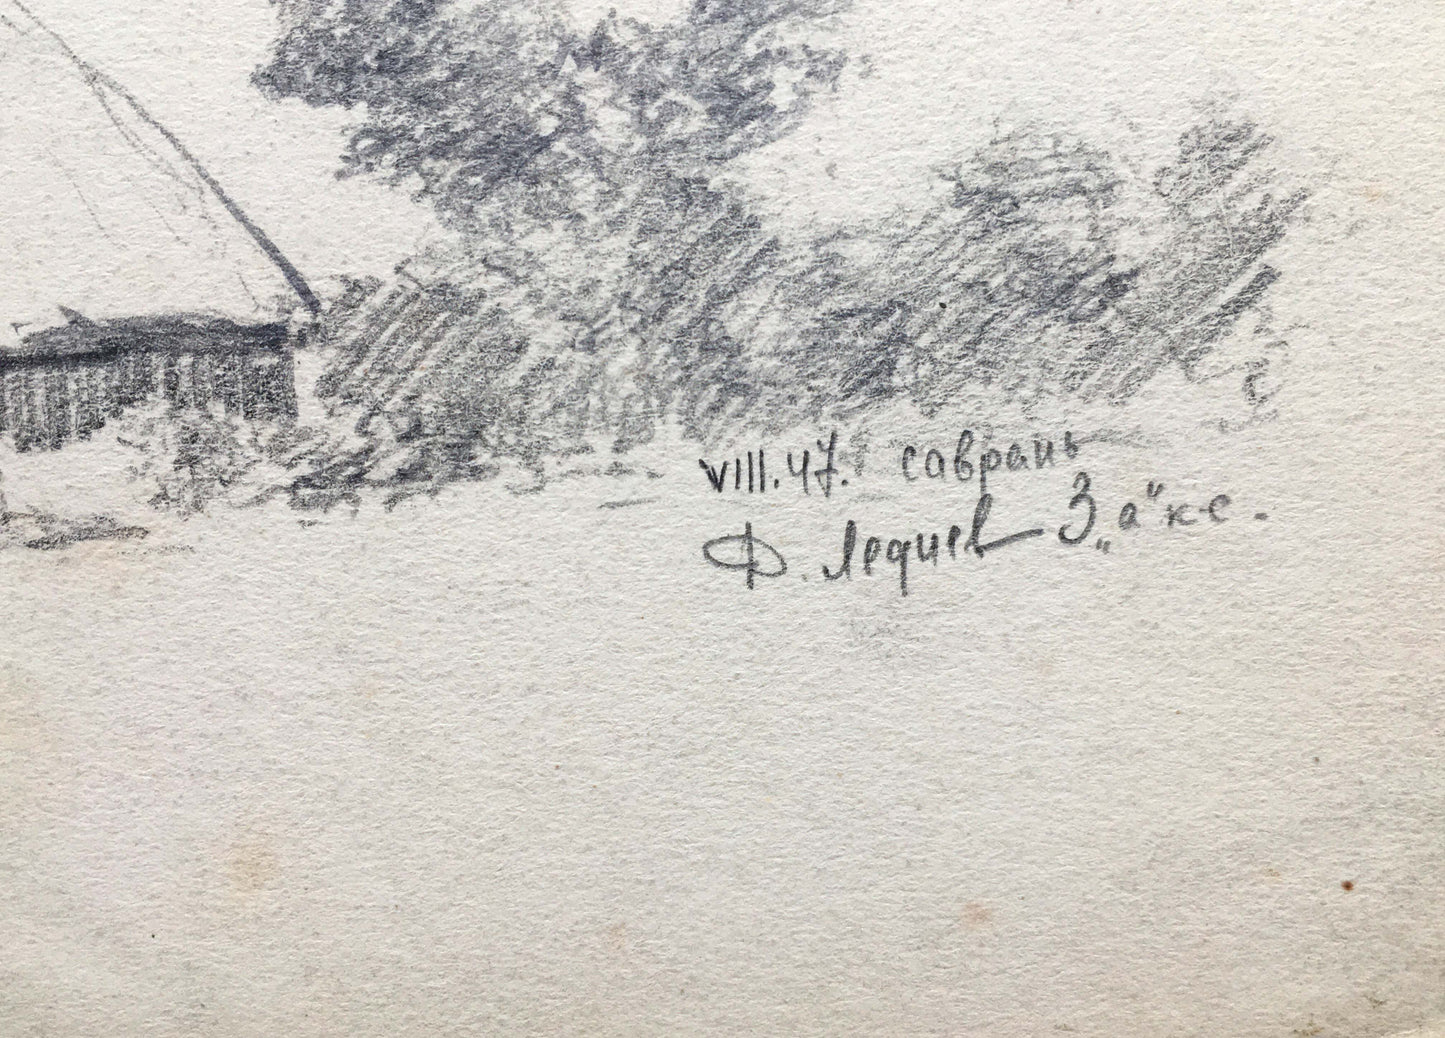 VIII.47. саврань
Ф. Ледиев 3 „а“ к-с.